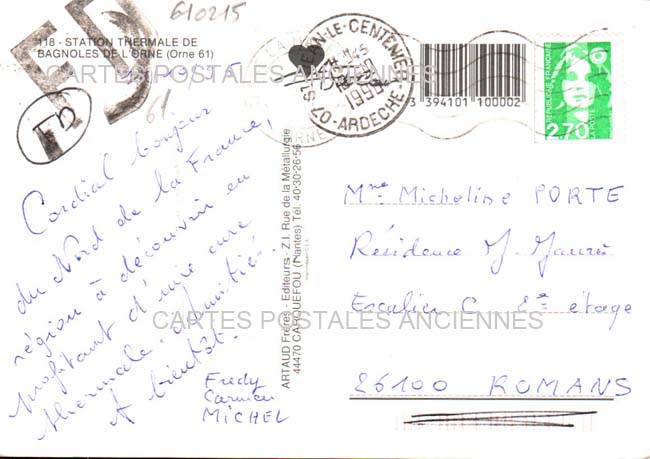 610215
118 - STATION THERMALE DE
BAGNOLES DE L'ORNE (Orne 61)
CARTES POSTALES ANCIENNES
61
Cordial bonjour
du Nord de la France,
région à découvrir en
profitant d'une cure
thermale. Amitiés.
A bientôt.
Fredy
Carmen
MICHEL
ARTAUD Frères - Editeurs - Z.I. Rue de la Métallurgie
44470 CARQUEFOU (Nantes) Tél. 40-30-26-56
07 ST JULIEN-LE-CENTENIER
ARDECHE
3 394101 100002
REPUBLIQUE FRANCAISE
LA POSTE
2,70
Mme Micheline PORTE
Résidence J. Jaurès
Escalier C 2e étage
CARTES POSTALES ANCIENNES
26100 ROMANS